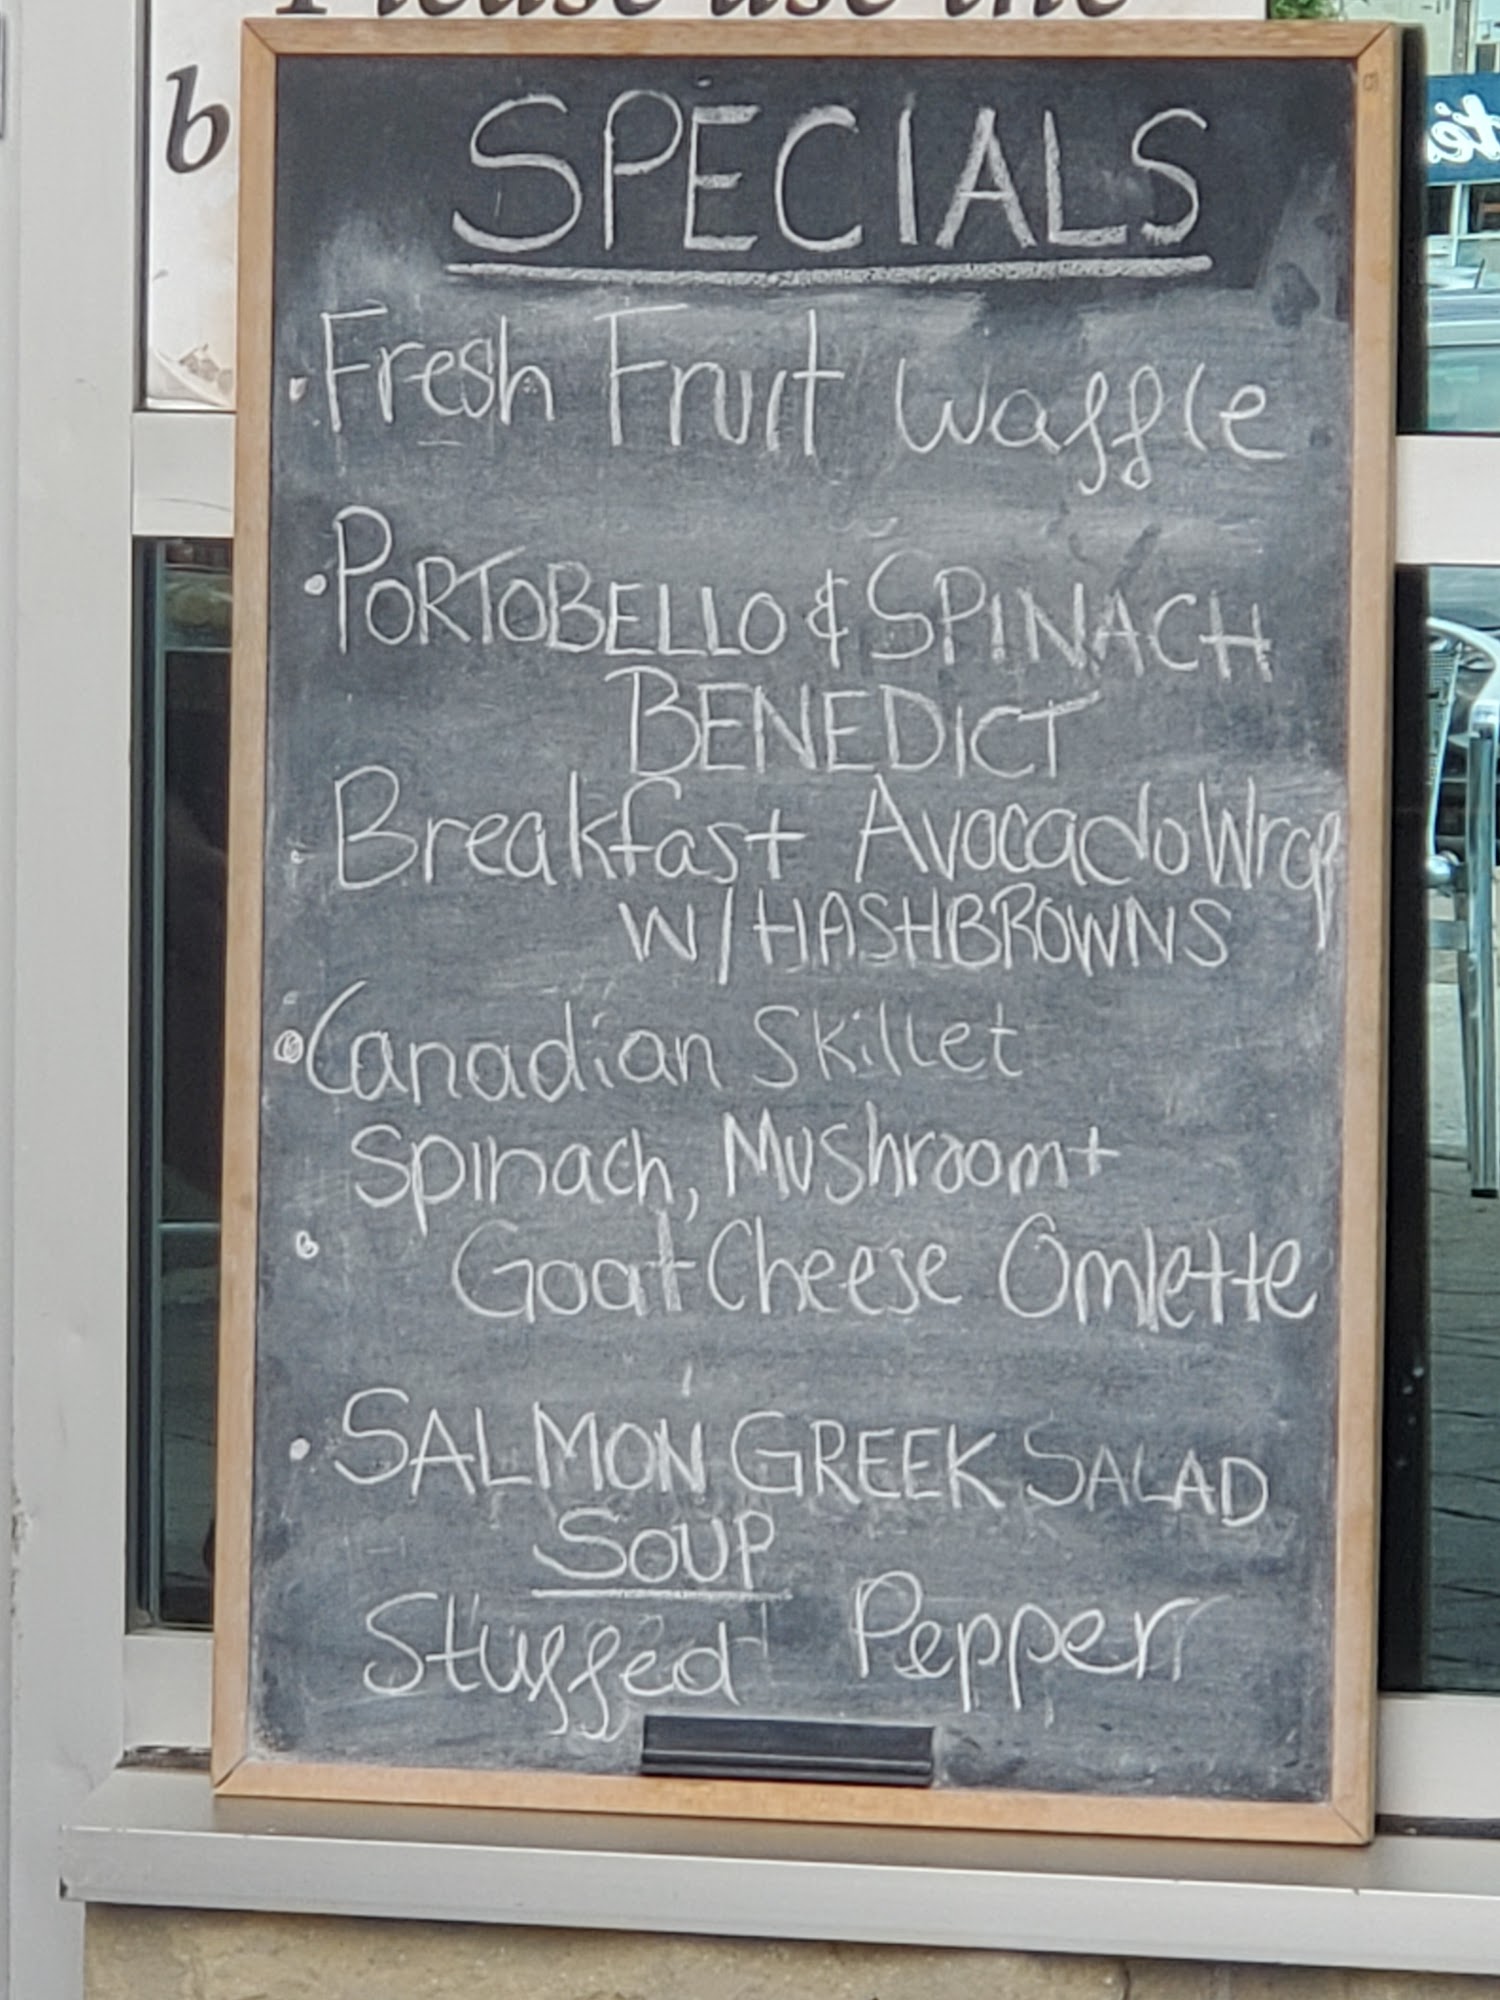 Please use the
b
SPECIALS
• Fresh Fruit Waffle
• PORTOBELLO & SPINACH
BENEDICT
• Breakfast Avocado Wrap
W/HASHBROWNS
• Canadian Skillet
Spinach, Mushroom +
• Goat Cheese Omlette
• SALMON GREEK SALAD
SOUP
Stuffed Pepper